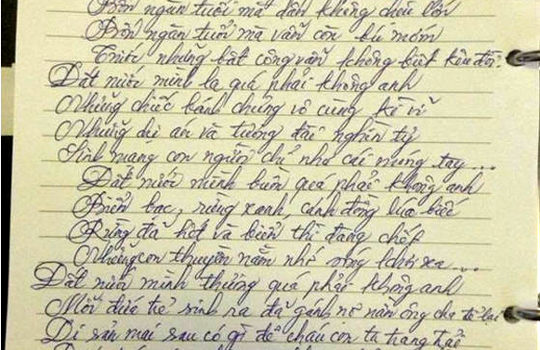 Bốn ngàn tuổi mà dân không chịu lớn
Bốn ngàn tuổi mà vẫn còn bú mớm
Trước những bất công vẫn không biết kêu đòi?
Đất nước mình lạ quá phải không anh
Những chiếc bánh chưng vô cùng kì vĩ
Những dự án và tượng đài nghìn tỷ
Sinh mạng con người chỉ như cái móng tay...
Đất nước mình buồn quá phải không anh
Biển bạc, rừng xanh, cánh đồng lúa biếc
Rừng đã hết và biển thì đang chết
Những con thuyền nằm nhớ sóng khơi xa...
Đất nước mình thương quá phải không anh
Mỗi đứa trẻ sinh ra đã gánh nợ nần ông cha để lại
Di sản mai sau có gì để cháu con ta trang trải